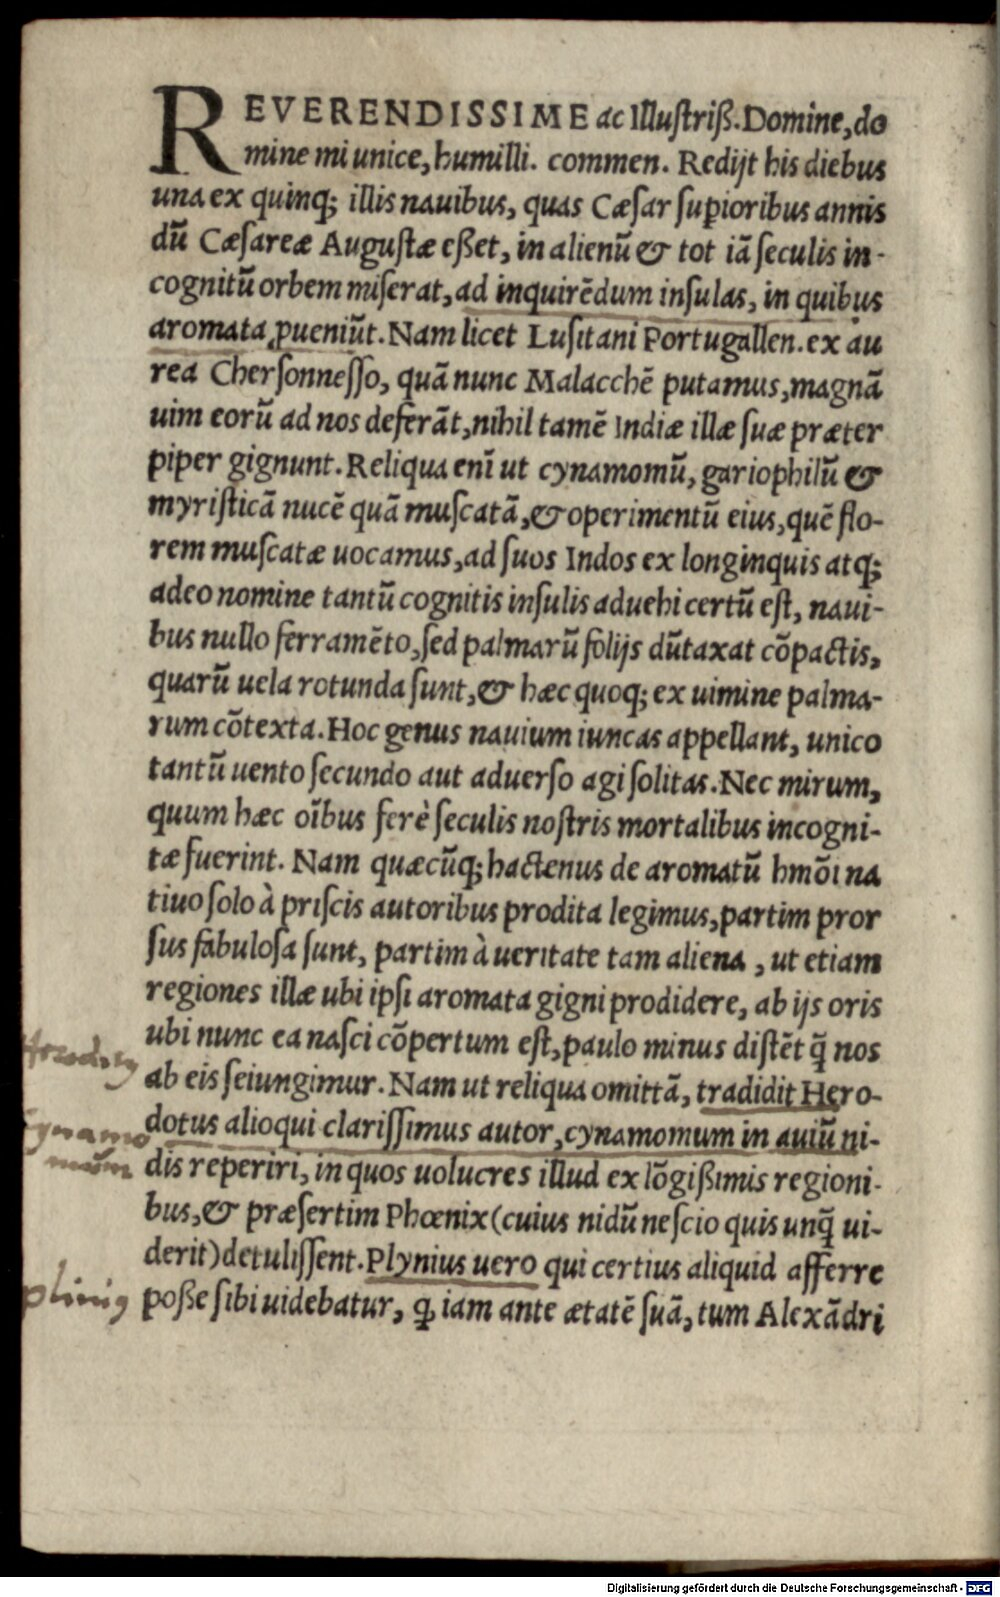 REVERENDISSIME ac Illustriß. Domine, do
mine mi unice, humilli. commen. Redijt his diebus
una ex quinq; illis nauibus, quas Cæsar supioribus annis
dũ Cæsareæ Augustæ eßet, in alienũ & tot iã seculis in-
cognitũ orbem miserat, ad inquirẽdum insulas, in quibus
aromata ꝓueniũt. Nam licet Lusitani Portugallen. ex au
rea Chersonnesso, quã nunc Malacchẽ putamus, magnã
uim eorũ ad nos deferãt, nihil tamẽ Indiæ illæ suæ præter
piper gignunt. Reliqua enĩ ut cynamomũ, gariophilũ &
myristicã nucẽ quã muscatã, & operimentũ eius, quẽ flo-
rem muscatæ uocamus, ad suos Indos ex longinquis atq;
adeo nomine tantũ cognitis insulis aduehi certũ est, naui-
bus nullo ferramẽto, sed palmarũ folijs dũtaxat cõpactis,
quarũ uela rotunda sunt, & hæc quoq; ex uimine palma-
rum cõtexta. Hoc genus nauium iuncas appellant, unico
tantũ uento secundo aut aduerso agi solitas. Nec mirum,
quum hæc oĩbus ferè seculis nostris mortalibus incogni-
tæ fuerint. Nam quæcũq; hactenus de aromatũ hmõi na
tiuo solo à priscis autoribus prodita legimus, partim pror
sus fabulosa sunt, partim à ueritate tam aliena, ut etiam
regiones illæ ubi ipsi aromata gigni prodidere, ab ijs oris
ubi nunc ea nasci cõpertum est, paulo minus distẽt q̃ nos
ab eis seiungimur. Nam ut reliqua omittã, tradidit Hero-
dotus alioqui clarissimus autor, cynamomum in auiũ ni-
dis reperiri, in quos uolucres illud ex lõgißimis regioni-
bus, & præsertim Phœnix (cuius nidũ nescio quis unq̃ ui-
derit) detulissent. Plynius uero qui certius aliquid afferre
poße sibi uidebatur, ꝙ iam ante ætatẽ suã, tum Alexãdri
Herodotus
Cynamo
mũm
plinius
Digitalisierung gefördert durch die Deutsche Forschungsgemeinschaft - DFG